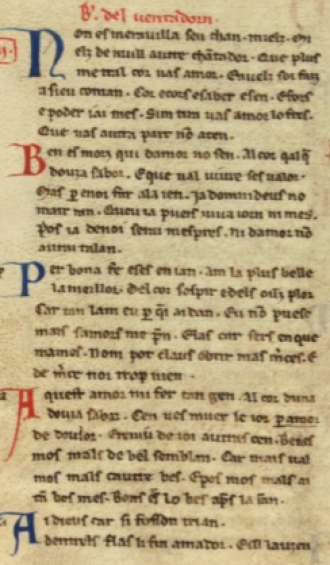 B. del uentadorn.
Non es merauilla seu chan. mielz. en
elz de nuill autre chātador. Que plus
me tral cor uas amor. E mielz soi faiz
a sieu coman. Cor e cors e saber e sen. E fors
e poder iai mes. Sim tira uas amor lo fres.
Que uas autra part no aten.
Ben es morz qui damor no sen. Al cor qalq
douza sabor. E que ual uiure ses ualor.
Mas p enoi far a la ien. Ja domindeus no
mair tan. Queu ia pueis uiua iorn ni mes.
Pos ia denoi serai mespres. ni damor nō
aurai talan.
Per bona fe e ses enian. am la plus belle
la meillor. Del cor sospir e dels oilz plor
Car tan lam eu p qi ai dan. Eu nō puesc
mais samors me pn. E las car sers en que
mames. Nom pot claus obrir mas mces. E
de mce noi trop nien.
Aquest amor mi fer tan gen. Al cor duna
douza sabor. Cen ues muer lo ior p amor
de doulor. E reuiu de ioi autras cen. Be es
mos mals de bel semblan. Car mais ual
mos mals cautre bes. E pos mos mals ai
tā bos mes. Bons er lo bes aps la fan.
Ai dieus car si fosson trian.
dentrels flas li fin amador. E il lauzen